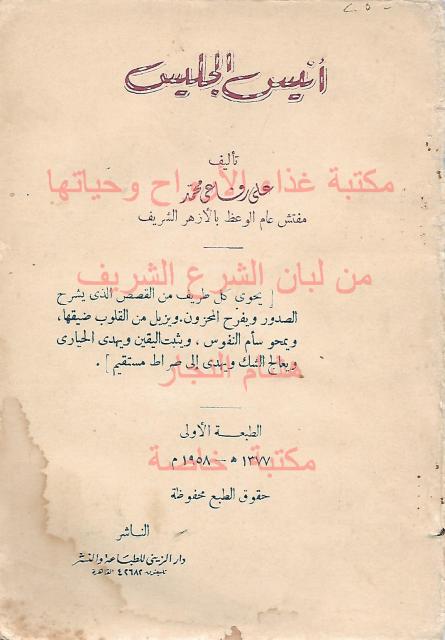 أنيس الجليس
تأليف
على رفاعى محمد
مكتبة غذاء الأرواح وحياتها
مفتش عام الوعظ بالأزهر الشريف
من لبان الشرع الشريف
[ يحوى كل طريف من القصص الذى يشرح
الصدور ويفرح المحزون. ويزيل من القلوب ضيقها،
ويمحو سأم النفوس ، ويثبت اليقين ويهدى الحيارى
ويعالج الشك ويهدى إلى صراط مستقيم ] .
هشام النجار
الطبعة الأولى
مكتبة خاصة
١٣٧٧ ھ – ١٩٥٨ م
حقوق الطبع محفوظة
الناشر
دار الزينى للطباعة والنشر
تليفون ٤٢٦٨٢ القاهرة